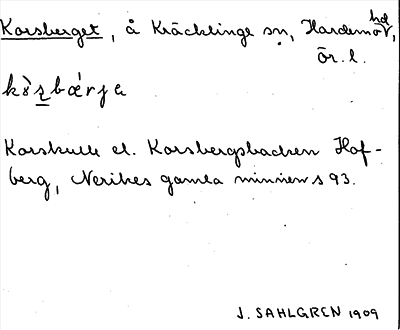 Korsberget, å Kräcklinge sn, Hardemo hd,
Ör. l.
kò̀ʂbǽrjɐ
Korskulle el. Korsbergsbacken Hof-
berg, Nerikes gamla minnen s 93.
J. SAHLGREN 1909